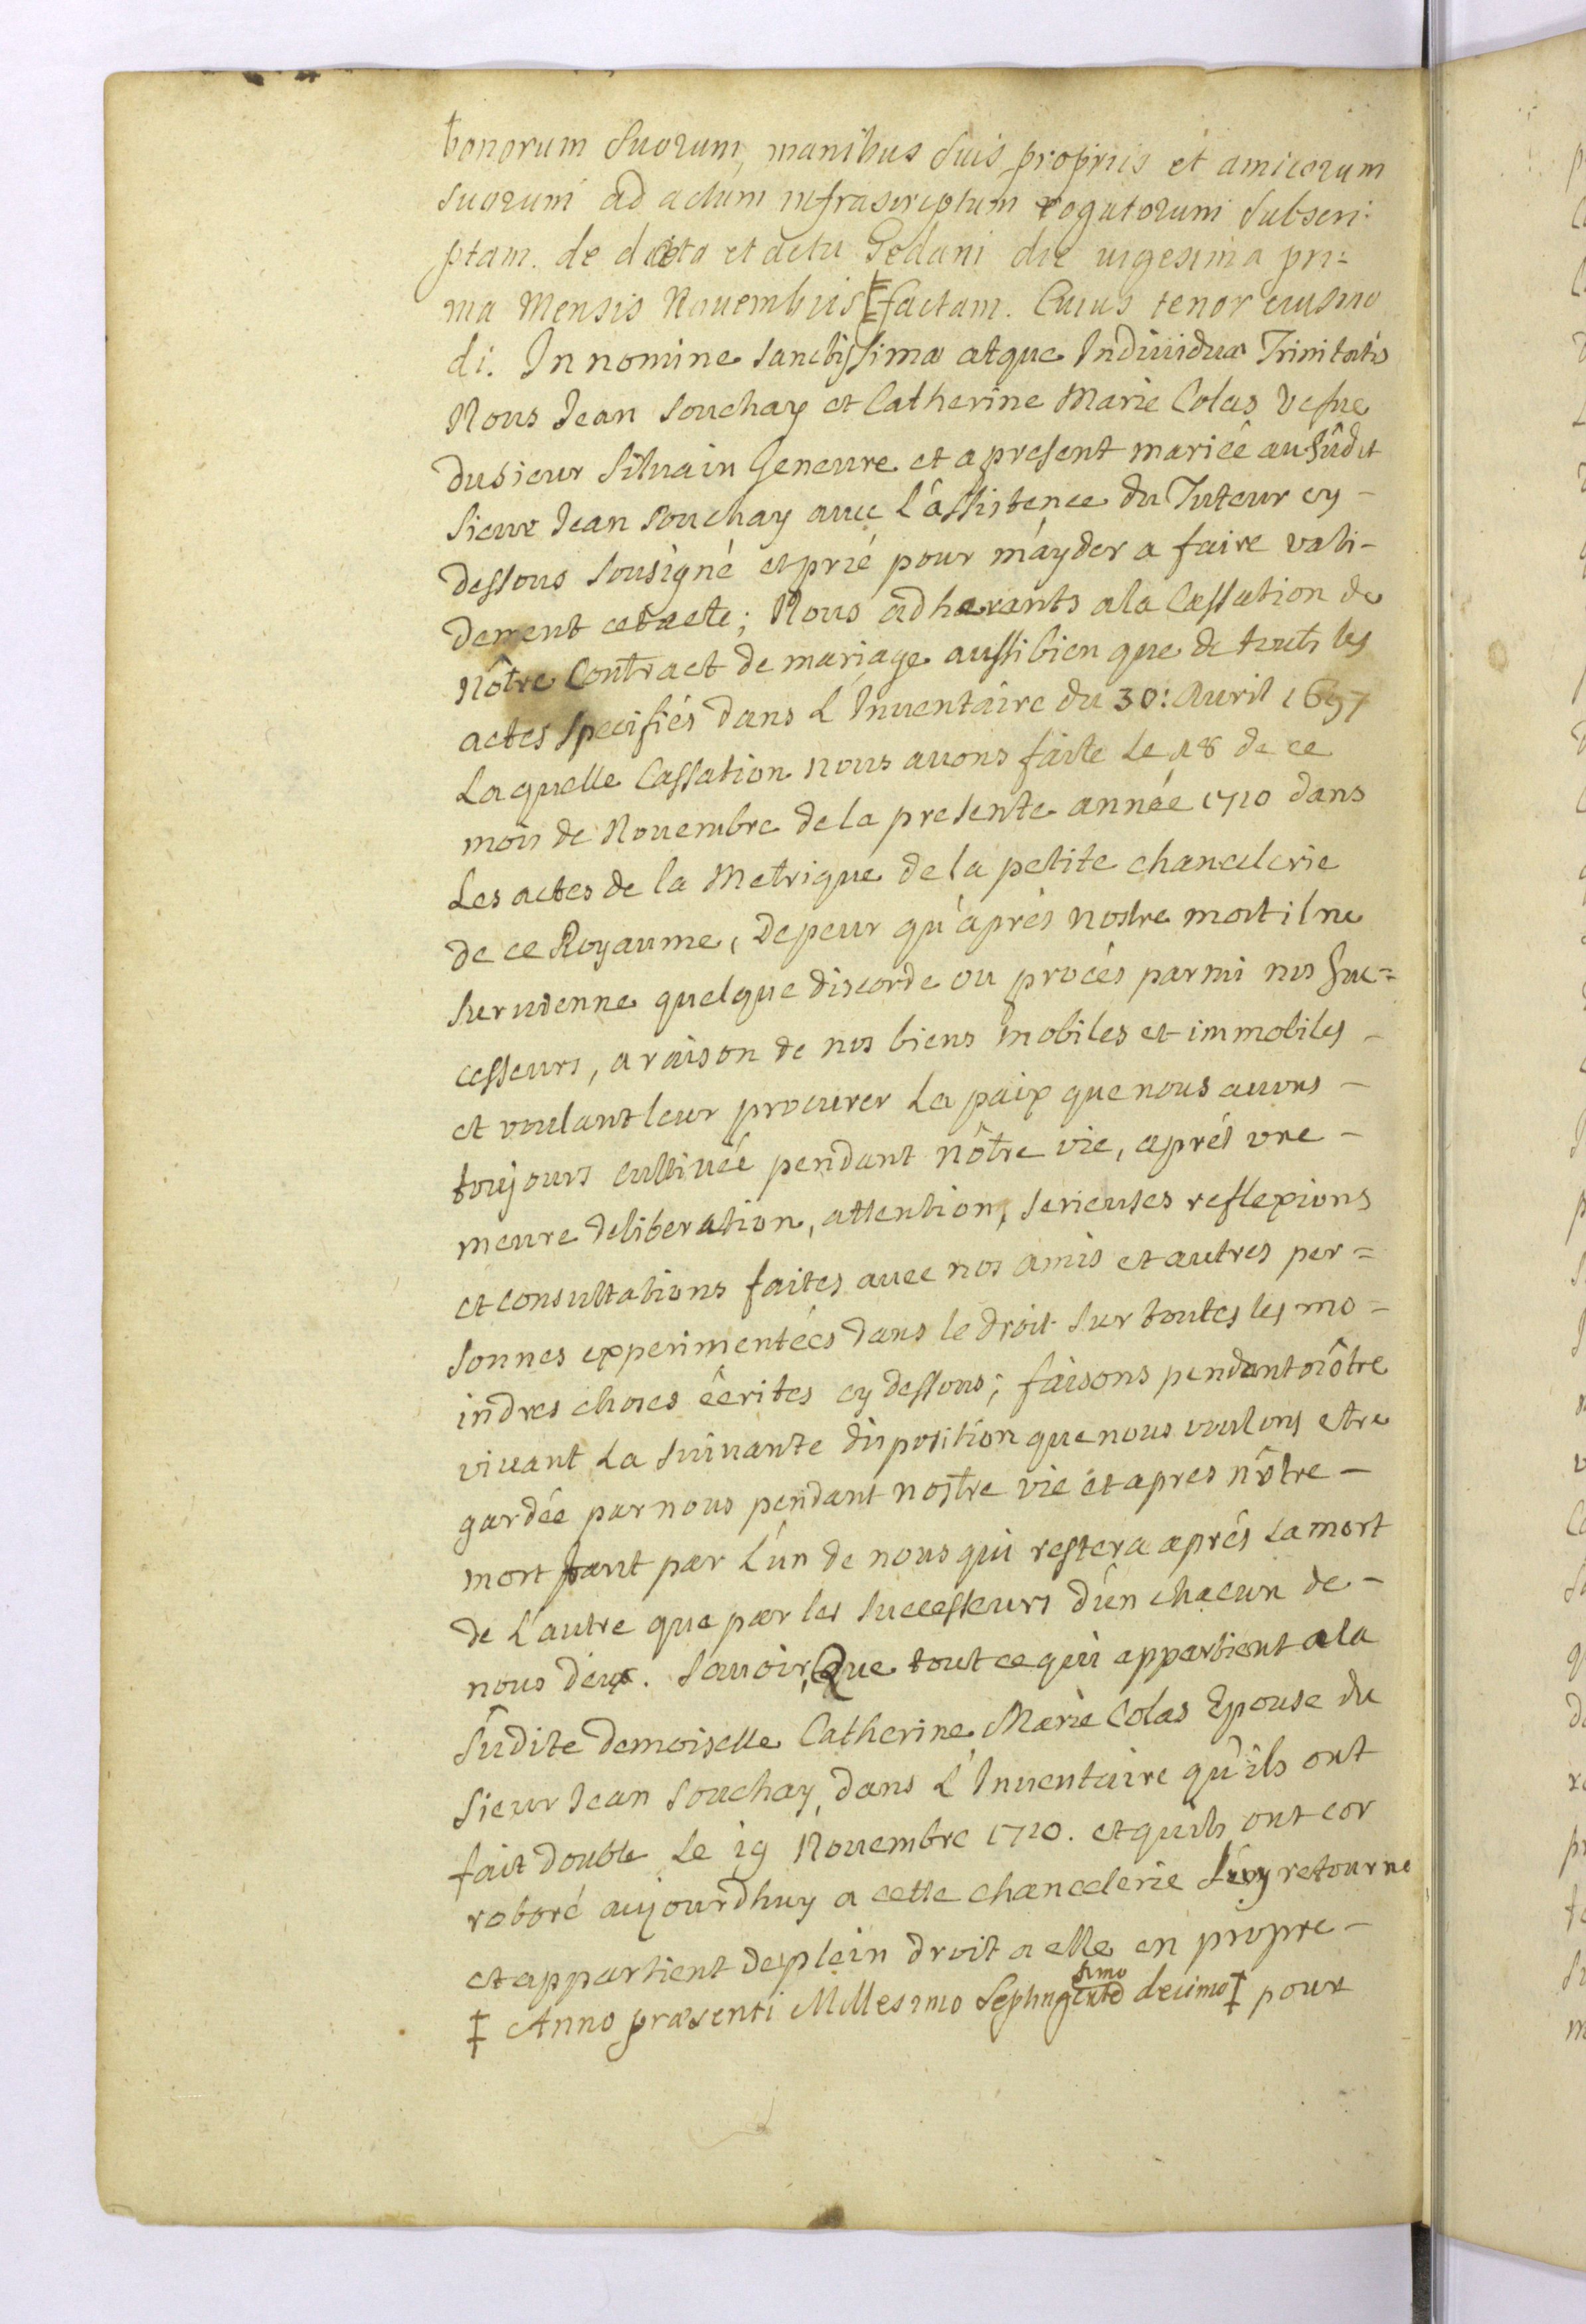 bonorum suorum, manibus suis propriis et amicorum
suorum ad actum infrascriptum rogatorum subscri-
ptam. de data et actu Gedani die vigesima pri=
ma Mensis Novembris ‡ factam. Cuius tenor eiusmo
di. In nomine sanctissimæ atque Individuæ Trinitatis
Nous Jean Souchay et Catherine Marie Colas Vefue
du sieur Siluain Geneure et a present mariéê au sûdit
sieur Jean Souchay auec l'assistence du Tuteur cy-
dessous sousigné et prié pour m'ayder a faire vali-
dement cet acte; Nous adherants a la Cassation de
nôtre Contract de mariage aussi bien que de touts les
actes specifiés dans L'Inuentaire du 30: Auril 1697
Laquelle Cassation nous auons faite Le 18 de ce
mois de Nouembre de la presente année 1710 dans
Les actes de la Metrique de la petite chancelerie
de ce Royaume, de peur qu'aprés nostre mort il ne
suruienne quelque discorde ou procés parmi nos suc=
cesseurs, a raison de nos biens mobiles et immobiles -
et voulant leur procurer La paix que nous auons -
toujours cultiuéé pendant nôtre vie, aprés vne -
meure deliberation, attention, serieuses reflexions
et consultations faites auec nos amis et autres per=
sonnes experimentées dans le droit sur toutes les mo=
indres choses écrites cy dessous; faisons pendant nôtre
viuant La suiuante disposition que nous voulons etre
gardée par nous pendant nostre vie et apres nôtre -
mort tant par L'un de nous qui restera aprés La mort
de L'autre que par les successeurs d'un chacun de -
nous deux. Sauoir, Que tout ce qui appartient a la
sûdite demoiselle Catherine Marie Colas Epouse du
sieur Jean Souchay, dans L'Inuentaire qu'ils ont
fait double Le 19 Nouembre 1710. et qu'ils ont cor
roboré aujourdhuy a cette chancelerie retourne
et appartient de plein droit a elle en propre -
‡ Anno præsenti Millesimo Septingentesimo decimo ‡ pour